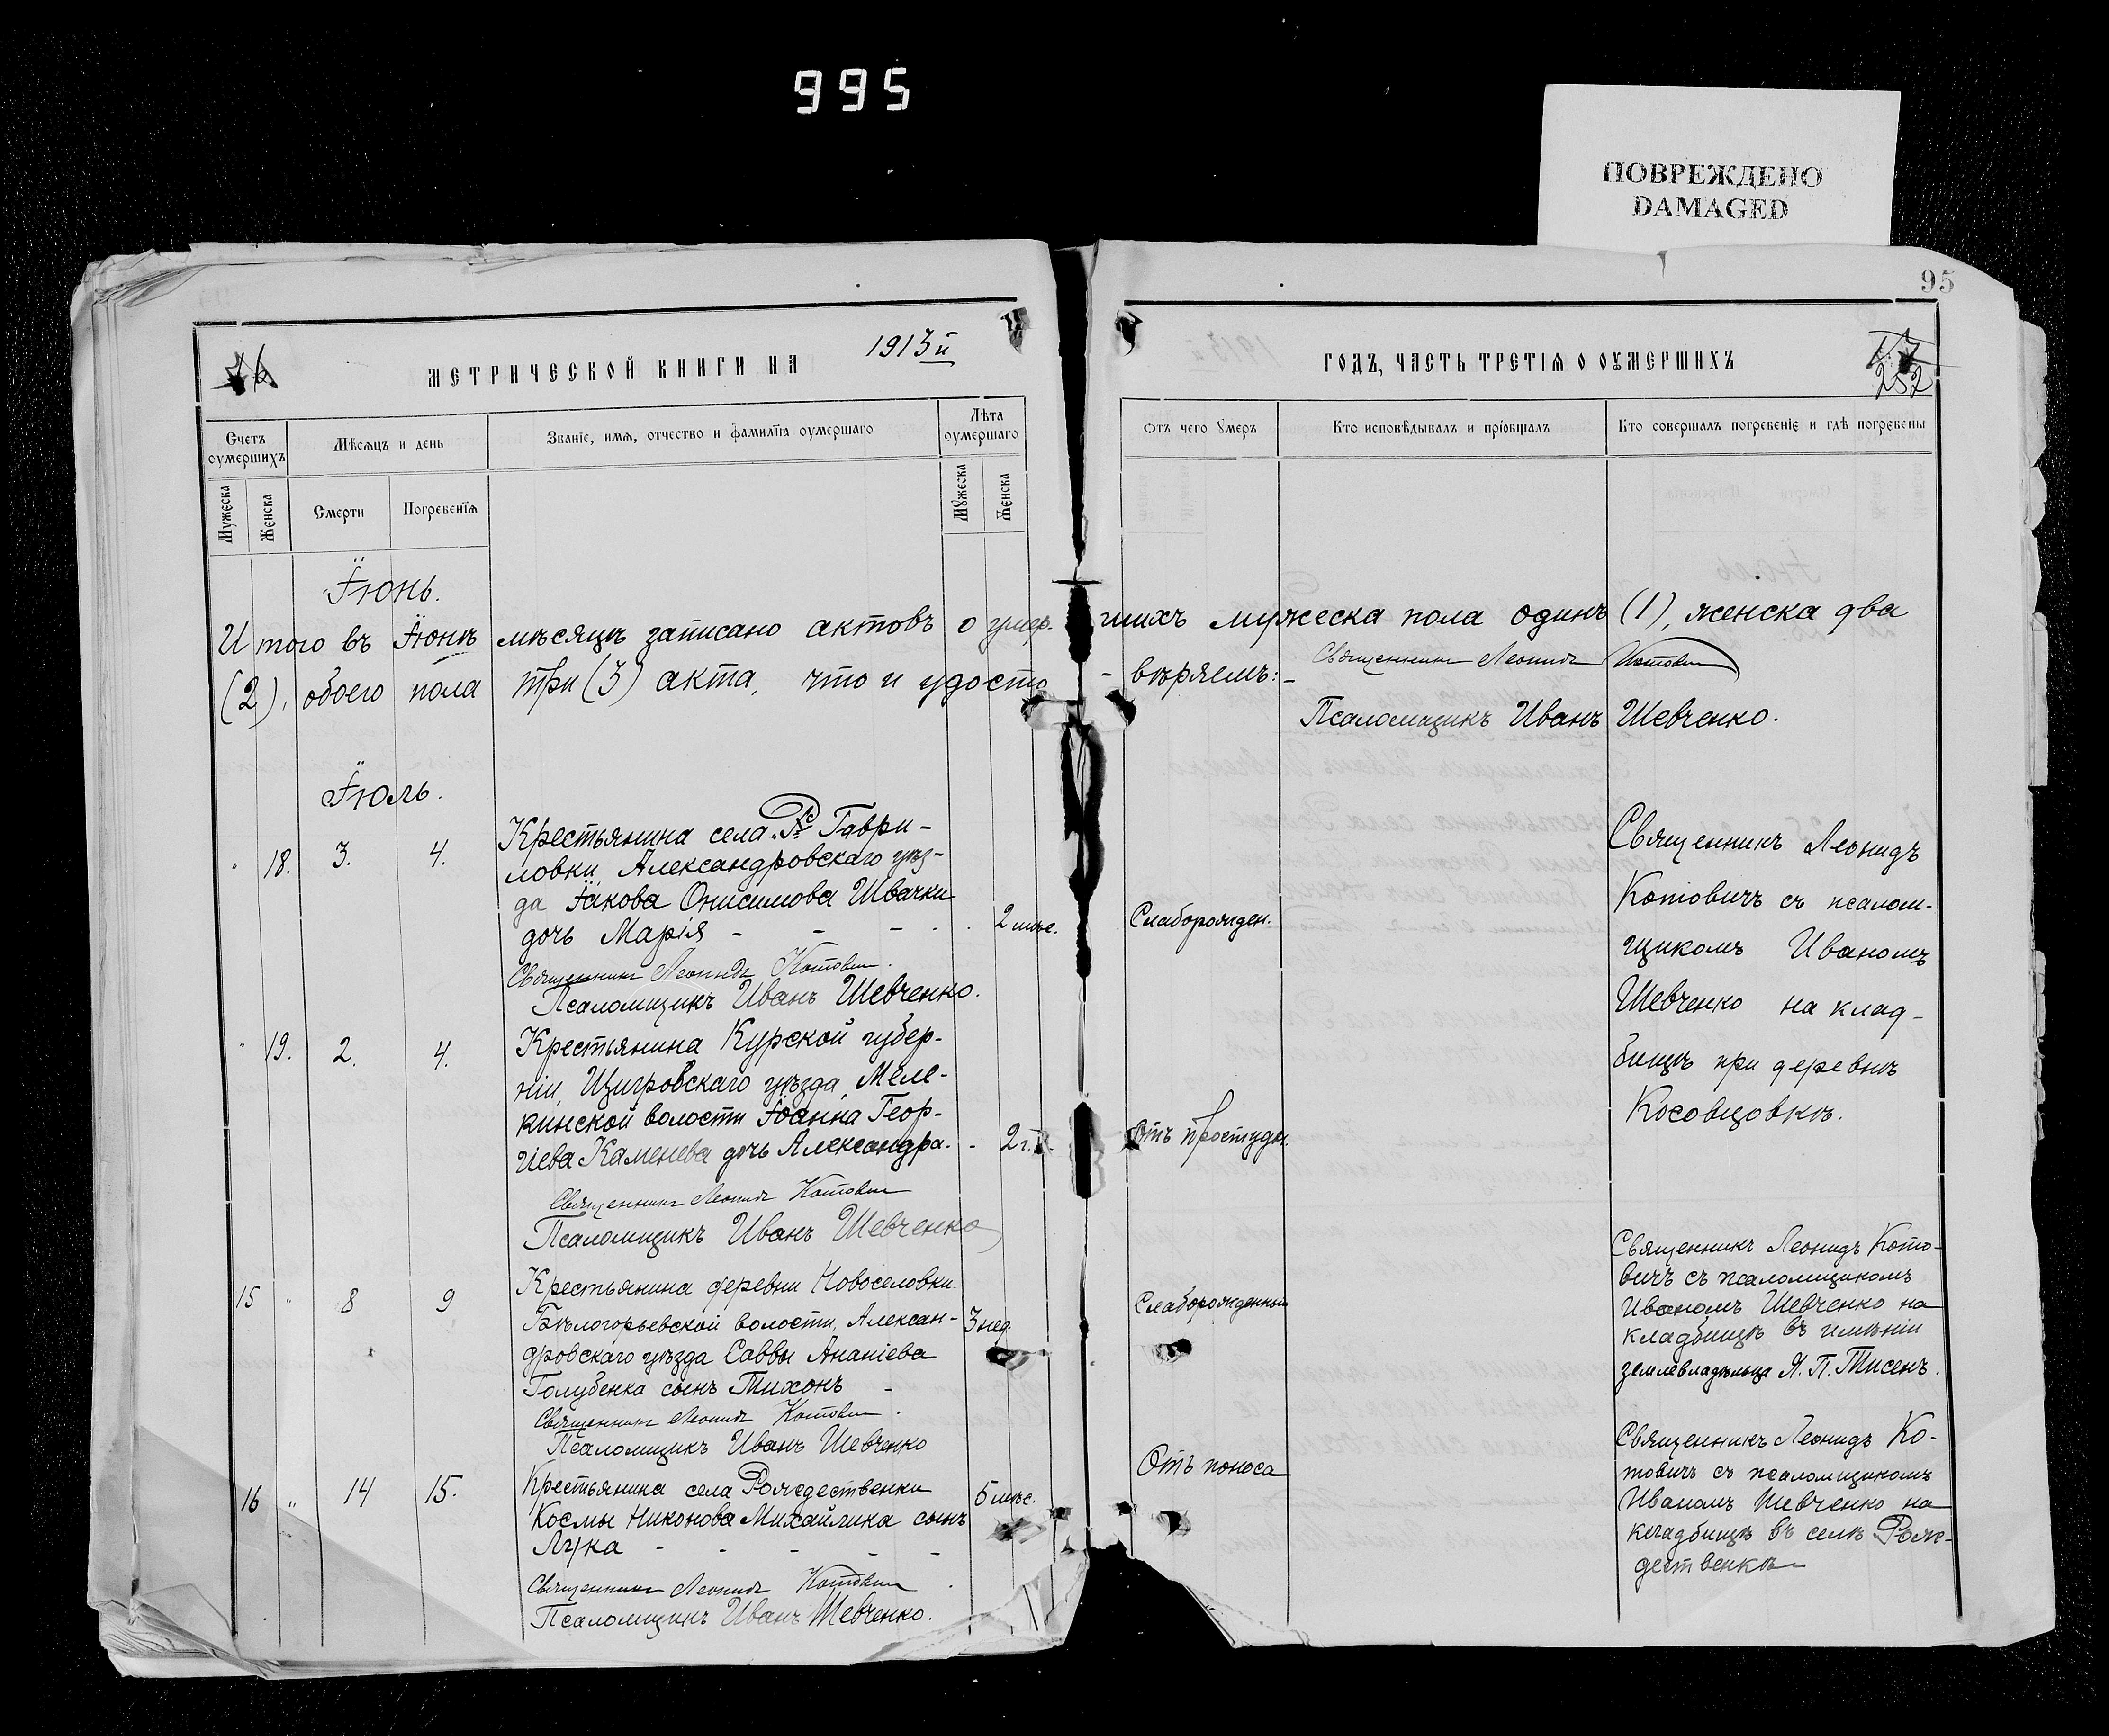 995
ПОВРЕЖДЕНО
DAMAGED
95
МЕТРИЧЕСКОЙ КНИГИ НА 1913й
ГОДЪ, ЧАСТЬ ТРЕТІЯ О ОУМЕРШИХЪ
252
Счетъ оумершихъ
Мѣсяцъ и день
Званіе, имя, отчество и фамилія оумершаго
Лѣта оумершаго
Отъ чего умеръ
Кто исповѣдывалъ и пріобщалъ
Кто совершалъ погребеніе и гдѣ погребены
Мужеска
Женска
Смерти
Погребенія
Мужеска
Женска
Іюнь.
Итого въ Іюнѣ мѣсяцѣ записано актовъ о умер- шихъ мужеска пола одинъ (1), женска два
(2), обоего пола три (3) акта, что и удосто- вѣряемъ:-
Священникъ Леонидъ Котович
Псаломщикъ Иванъ Шевченко.
Іюль.
18. 3. 4.
Крестьянина села Гаври-
ловки, Александровскаго уѣз-
да Іакова Онисимова Швачки
дочь Марія - - -
2 мѣс.
Слаборожден.
Священникъ Леонидъ Котович.
Псаломщикъ Иванъ Шевченко.
Священникъ Леонидъ
Котовичъ съ псалом-
щикомъ Иваномъ
Шевченко на клад-
бищѣ при деревнѣ
Косовцовкѣ.
19. 2. 4.
Крестьянина Курской губер-
ніи, Щигровскаго уѣзда, Меле-
кинской волости Іоанна Геор-
гіева Каменева дочь Александра.
2 г.
Отъ простуды.
Священникъ Леонидъ Котович
Псаломщикъ Иванъ Шевченко
15 " 8 9
Крестьянина деревни Новоселовки
Бѣлогорьевской волости, Алексан-
дровскаго уѣзда Саввы Ананіева
Голубенка сынъ Тихонъ -
3 нед.
Слаборожденный
Священникъ Леонидъ Котович.
Псаломщикъ Иванъ Шевченко
Священникъ Леонидъ Кото-
вичъ съ псаломщикомъ
Иваномъ Шевченко на
кладбищѣ въ имѣніи
землевладѣльца Я. П. Тисенъ.
16 " 14 15.
Крестьянина села Рождественки
Космы Никонова Михайлика сынъ
Лука - - - - -
5 мѣс.
Отъ поноса
Священникъ Леонидъ Котович
Псаломщикъ Иванъ Шевченко.
Священникъ Леонидъ Ко-
товичъ съ псаломщикомъ
Иваномъ Шевченко на
кладбищѣ въ селѣ Рож-
дественкѣ